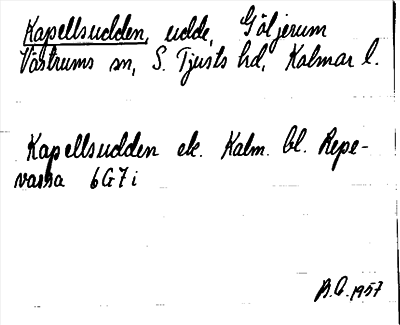 Kapellsudden, udde, Göljerum
Västrums sn, S. Tjusts hd, Kalmar l.
Kapellsudden ek. Kalm. bl. Repe-
vassa 6G7i
B.O. 1957